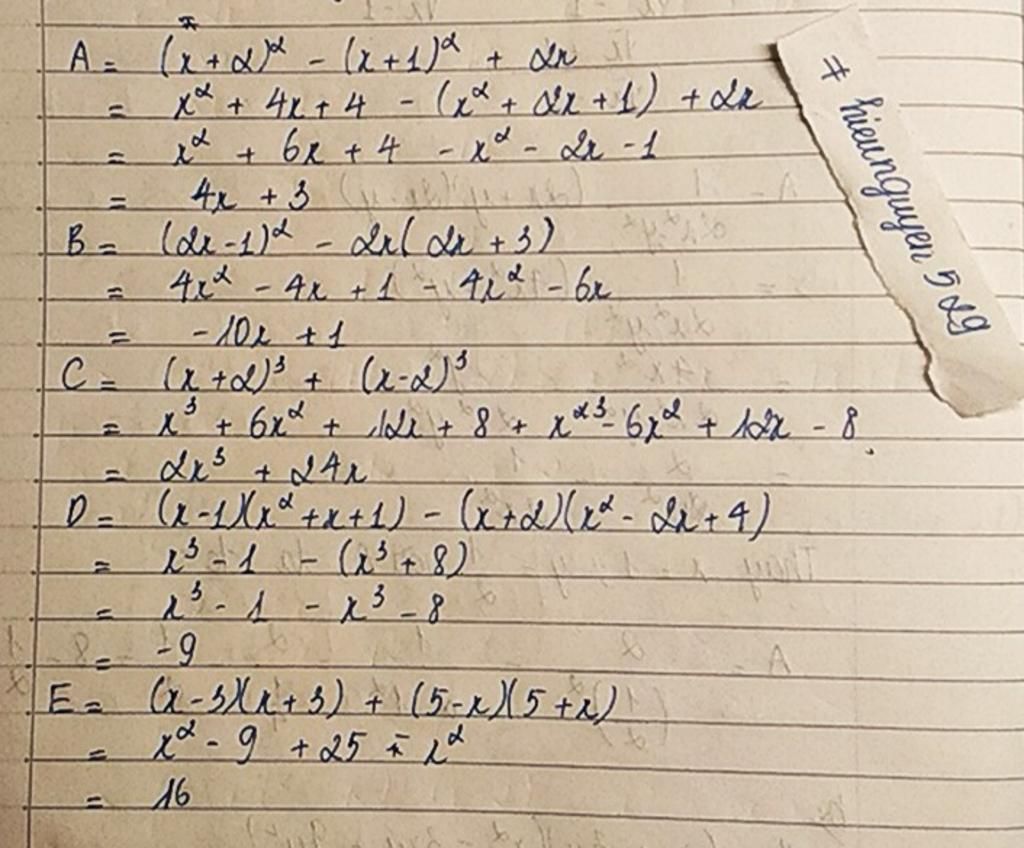 A = (x+2)² - (x+1)² + 2x
= x² + 4x + 4 - (x² + 2x + 1) + 2x
= x² + 6x + 4 - x² - 2x - 1
= 4x + 3
B = (2x-1)² - 2x(2x+3)
= 4x² - 4x + 1 - 4x² - 6x
= -10x + 1
C = (x+2)³ + (x-2)³
= x³ + 6x² + 12x + 8 + x³ - 6x² + 12x - 8
= 2x³ + 24x
D = (x-1)(x²+x+1) - (x+2)(x² - 2x + 4)
= x³ - 1 - (x³ + 8)
= x³ - 1 - x³ - 8
= -9
E = (x-3)(x+3) + (5-x)(5+x)
= x² - 9 + 25 - x²
= 16
# hieunguyen 529